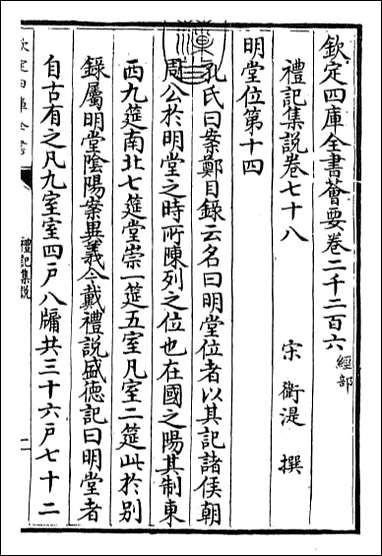 欽定四庫全書薈要卷二千二百六 經部
禮記集說卷七十八
宋 衛湜 撰
明堂位第十四
孔氏曰案鄭目錄云名曰明堂位者以其記諸侯朝
周公於明堂之時所陳列之位也在國之陽其制東
西九筵南北七筵堂崇一筵五室凡室二筵此於别
錄屬明堂陰陽案異義今戴禮說盛徳記曰明堂者
自古有之凡九室室四戶八牖共三十六戶七十二
欽定四庫全書
禮記集說